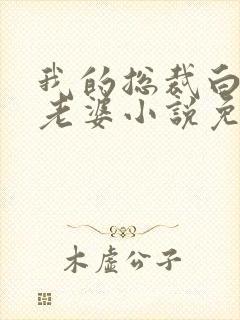 我的总裁白
老婆小说免
木虚公子